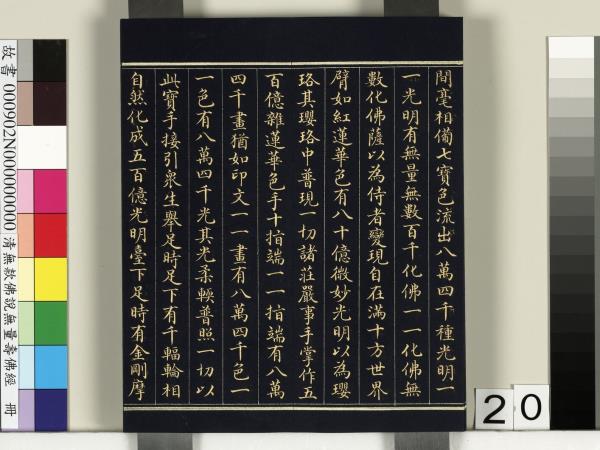 間毫相備七寶色流出八萬四千種光明一
一光明有無量無數百千化佛一一化佛無
數化佛薩以為侍者變現自在滿十方世界
臂如紅蓮華色有八十億微妙光明以為瓔
珞其瓔珞中普現一切諸莊嚴事手掌作五
百億雜蓮華色手十指端一一指端有八萬
四千畫猶如印文一一畫有八萬四千色一
一色有八萬四千光其光柔輭普照一切以
此寶手接引眾生舉足時足下有千輻輪相
自然化成五百億光明臺下足時有金剛摩
故書 000902N000000000 清無款佛說無量壽佛經 冊
20